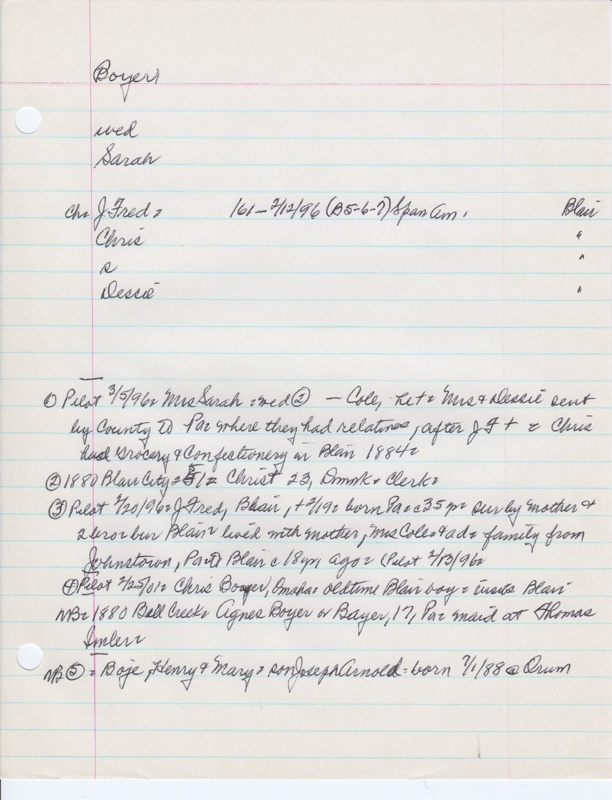 Boyer
wed
Sarah
Ch= J Fred = 161 - 2/12/96 (B5-6-7) Span Am. Blair
Chris "
s "
Dessie "
① Pilot 3/5/96= Mrs Sarah = wed ② — Cole, = Mrs & Dessie sent
by County to Pa= where they had relatives, after J F + = Chris
had Grocery & Confectionery in Blair 1884=
② 1880 Blair City = 1= Christ 23, Clerk=
③ Pilot 2/20/96= J Fred, Blair, + 2/19= born Pa= c 35 sur by mother &
2 bro= bur Blair= lived with mother, Mrs Cole= & ad= family from
Johnstown, Pa to Blair c 18 yrs ago = (Pilot 2/13/96=
④ Pilot 2/25/01= Chris Booyer, Omaha= oldtime Blair boy = visits Blair
NB= 1880 Bell Creek= Agnes Boyer or Bayer, 17, Pa= maid at Thomas
Imler=
NB ⑤ = Boje, Henry & Mary= son Joseph Arnold = born 7/1/88 @ Orum